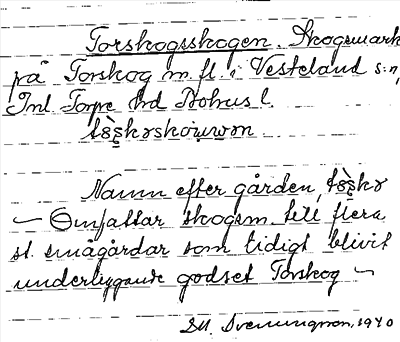 Torskogsskogen. Skogsmark
på Torskog m. fl. i Vesterland s:n,
Inl. Torpe hd Bohus l.

Namn efter gården,
— Omfattar skogsm. till flera
st. smågårdar som tidigt blivit
underlyggande godset Torskog —
1940